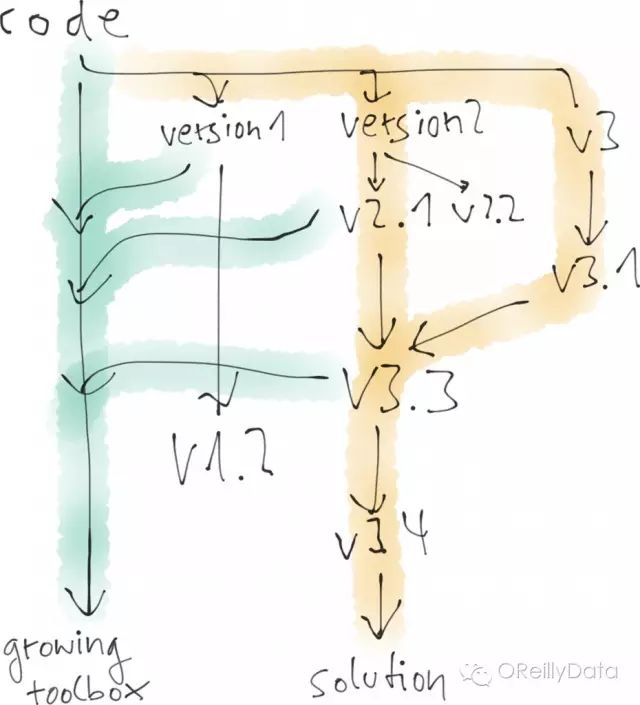 code
version1
version2
v3
v2.1
v2.2
v3.1
v3.3
v1.2
v3.4
growing
toolbox
solution
OReillyData